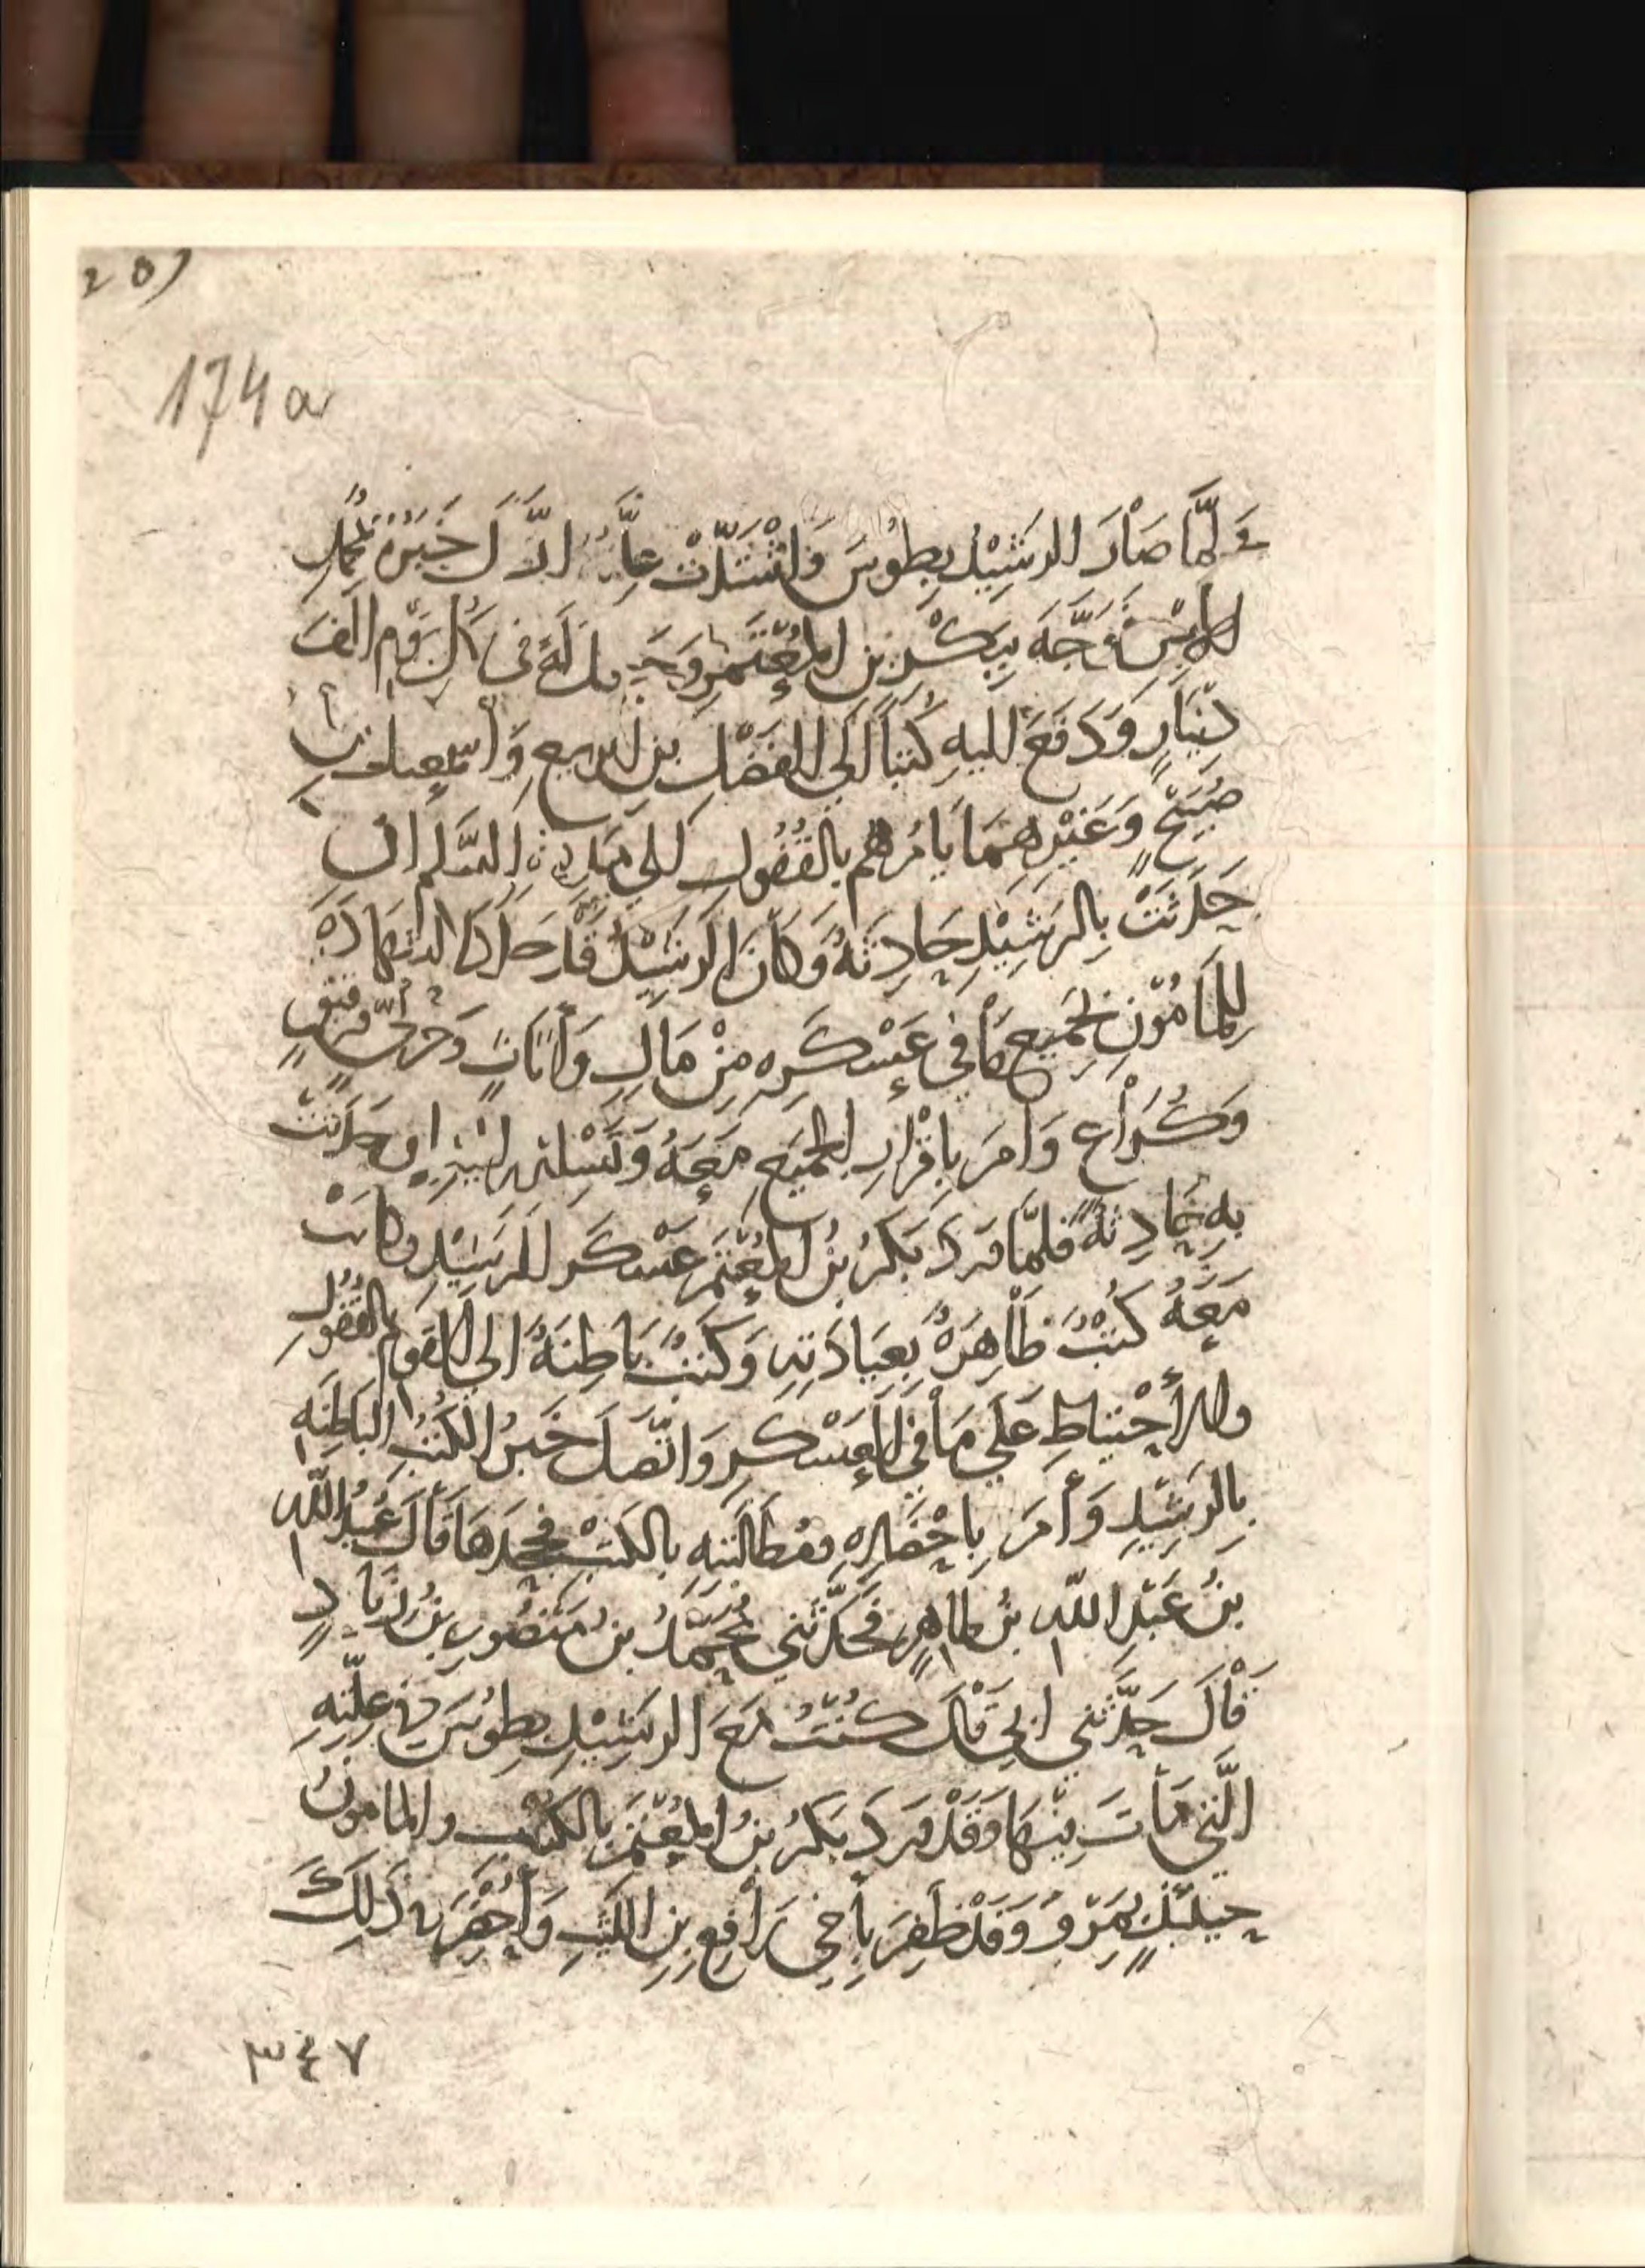 207
174a
وَلَمَّا صَارَ الرَشِيْد بِطُوْسَ وَاشْتَدَّتْ عِلَّتُهُ اتَّصَلَ خَبَرُهُ بمُحمَّدٍ
الامين فَوَجَّهَ بِبَكْرِ بن المُعْتَمِرِ وَجَعل لَهُ فى كُل يَوْمٍ الفَ
دِيْنَارٍ وَدَفَعَ اليهِ كُتباً الَي الفَضْلِ بن الربيعِ وَاسمعيلَ بنِ
صُبَيْحٍ وَغَيْرِهِمَا يَامُرُهُم بالقُفُولِ الي مَدينة السَّلمِ ان
حَدَثَتْ بِالرَشِيْدِ حَادِثَةٌ وَكَانَ الرَشِيْدُ قَدْ جَدَّدَ الشهَادَةَ
لِلْمَامُوْنِ بجَمِيعِ مَا في عَسْكَرِهِ مِنْ مَالٍ وَأَثَاثٍ وَخُرْثِيٍّ وَرَقِيْقٍ
وَكُرَاعٍ وَامَرَ باِقْرَارِ الجَمِيعِ مَعَهُ وَتَسْلِيمِه اليْهِ ان حَدَثَتْ
بِهِ حَادِثَةٌ فَلَمّا وَرَدَ بَكْرُ بنُ المُعْتَمِرِ عَسْكَر الرَشِيْدِ وكانَتْ
مَعَهُ كُتُبٌ ظَاهِرَةٌ بِعِيَادَتِهِ وَكُتُبٌ بَاطِنَةٌ الي القَومِ بالقُفُوْلِ
والاحْتِيَاطِ عَلَي مَا في العَسْكَرِ وَاتَّصَلَ خَبَرُ الكُتُبِ البَاطِنَةِ
بِالرَشِيْدِ وَأَمَرَ بِاحْضَارِهِ ومُطَالَبَتِهِ بالكُتُبِ فجَحَدَهَا قَالَ عُبَيْدُ اللّهِ
بنُ عَبْدِ اللّهِ بنُ طَاهِرٍ فَحَدَّثَنِي مُحَمَّدُ بنُ مَنْصُورِ بنُ زِيَادٍ
قَالَ حَدَّثَنِي ابِي قَالَ كُنْتُ مَعَ الرَشِيْدِ بِطُوْسَ في عِلَّتِهِ
الَّتِي مَاتَ مِنْهَا وَقَدْ وَرَدَ بَكْرُ بنُ المُعْتَمِرِ بالكُتُبِ والمَامُونُ
حِيْنَئِذٍ بِمَرْوَ وَقَدْ ظَفِرَ بِأَخِي رَافِعِ بنِ اللَيْثِ وَأُحْضِرَ في ذَلِكَ
٣٤٧